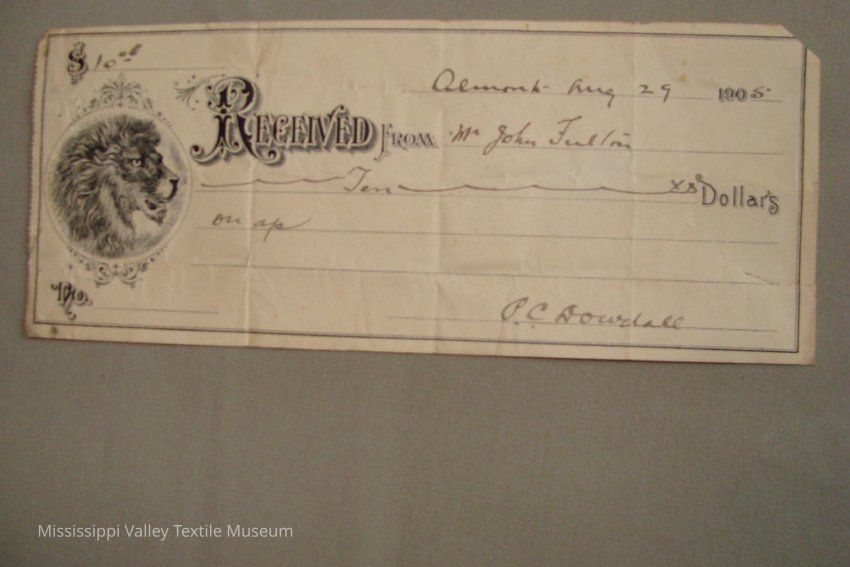 $ 10.00
Almonte Aug 29 1905
RECEIVED FROM Mr John Fulton
Ten xx Dollars
on a/c
No.
P. C. Dowdall
Mississippi Valley Textile Museum